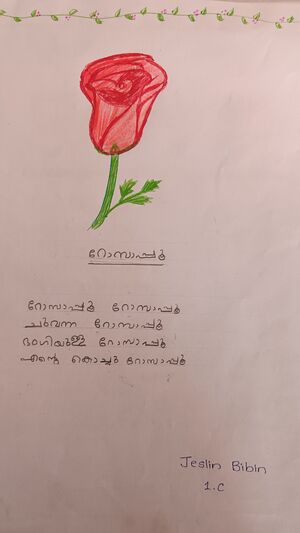 റോസാപ്പൂ
റോസാപ്പൂ റോസാപ്പൂ
ചുവന്ന റോസാപ്പൂ
ഭംഗിയുള്ള റോസാപ്പൂ
എന്റെ കൊച്ചു റോസാപ്പൂ
Jeslin Bibin
1.C